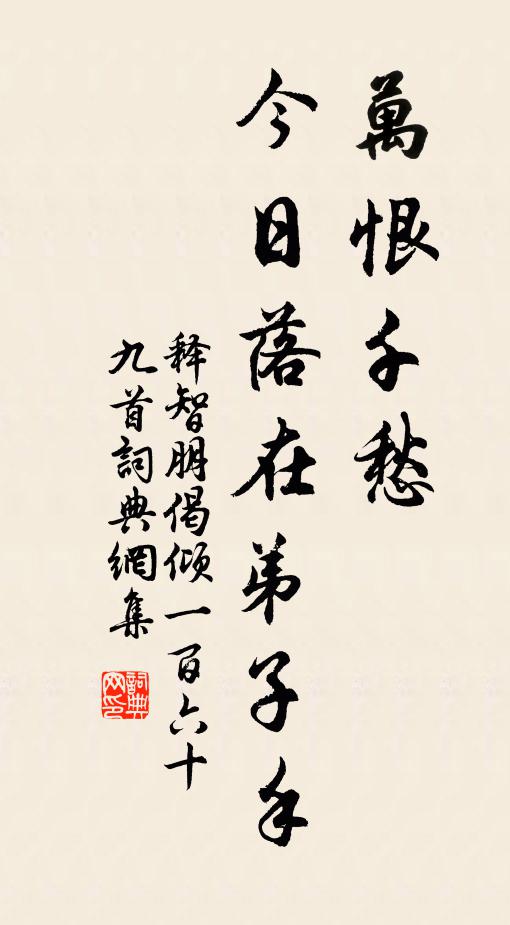 萬恨千愁
今日落在弟子手
釋智朋偈傾一百六十
九首詞典網集
詞典
网印